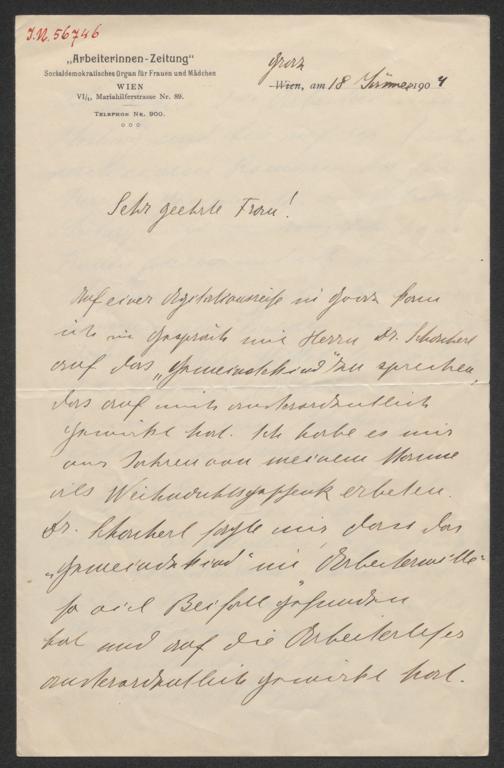 J.N. 56746
„Arbeiterinnen-Zeitung"
Sozialdemokratisches Organ für Frauen und Mädchen
WIEN
VI/1, Mariahilferstrasse Nr. 89.
Telephon Nr. 900.
Graz
Wien, am 18 Jänner 1904
Sehr geehrte Frau!
Auf einer Agitationsreise in Graz kam
ich im Gespräch mit Herrn Dr. Schacherl
auf das „Gemeindekind" zu sprechen,
das auf mich außerordentlich
gewirkt hat. Ich habe es mir
vor Jahren von meinem Manne
als Weihnachtsgeschenk erbeten.
Dr. Schacherl sagte mir, dass das
„Gemeindekind" im Arbeiterwille
so viel Beifall gefunden
hat und auf die Arbeiterleser
außerordentlich gewirkt hat.